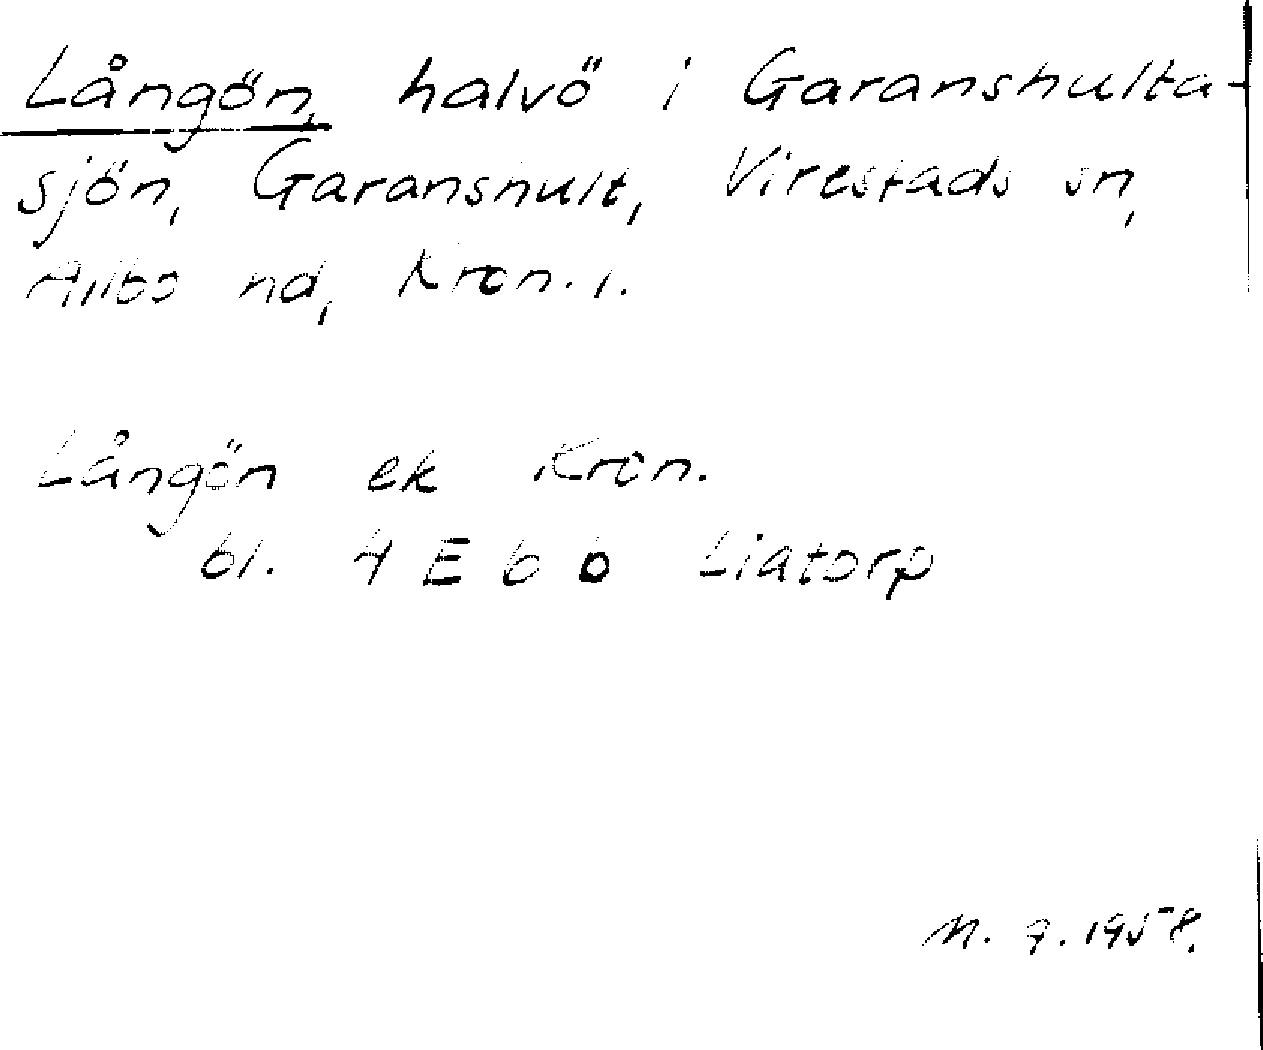 Långön, halvö i Garanshulta-
sjön, Garanshult, Virestads sn,
Allbo hd, Kron. l.
Långön ek Kron.
bl. 4 E 6 b Liatorp
M. G. 1958.